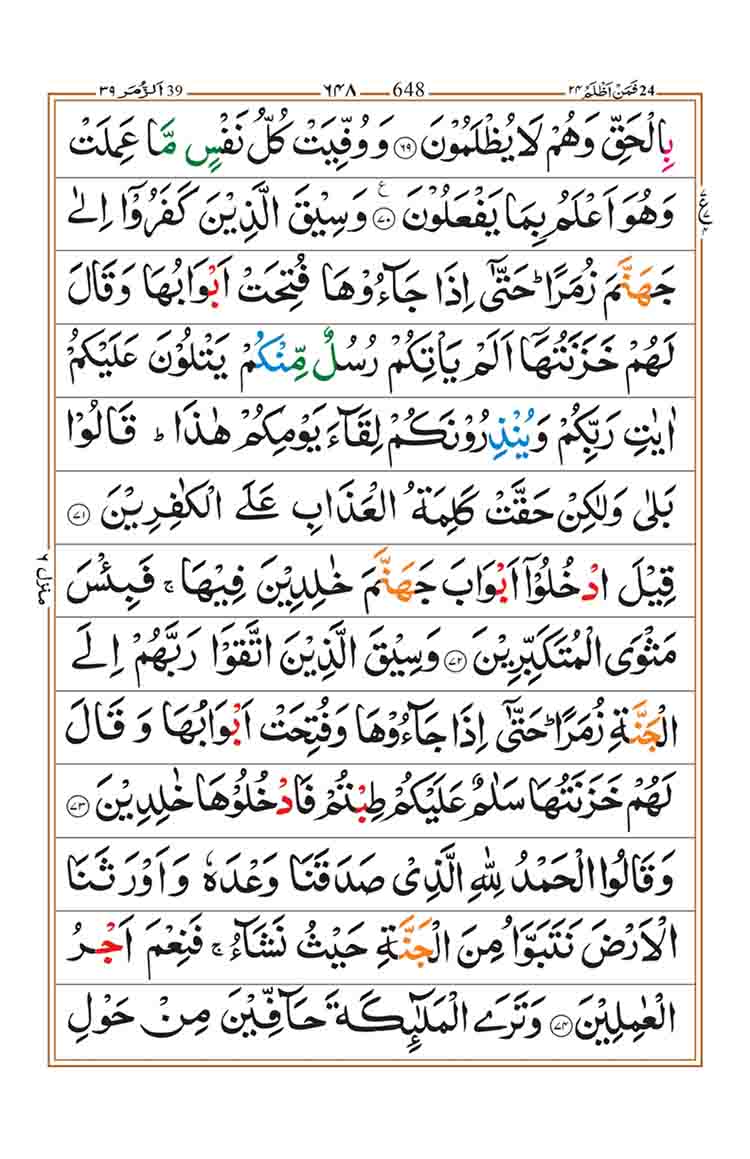 24 فَمَنْ اَظْلَمُ ۲۴ 648 ۶۴۸ 39 اَلزُّمَر ۳۹
بِالْحَقِّ وَهُمْ لَا يُظْلَمُوْنَ ۶۹ وَوُفِّيَتْ كُلُّ نَفْسٍ مَّا عَمِلَتْ
وَهُوَ اَعْلَمُ بِمَا يَفْعَلُوْنَ ۷۰ وَسِيْقَ الَّذِيْنَ كَفَرُوْۤا اِلٰى
جَهَنَّمَ زُمَرًا ؕ حَتّٰۤى اِذَا جَآءُوْهَا فُتِحَتْ اَبْوَابُهَا وَقَالَ
لَهُمْ خَزَنَتُهَاۤ اَلَمْ يَاْتِكُمْ رُسُلٌ مِّنْكُمْ يَتْلُوْنَ عَلَيْكُمْ
اٰيٰتِ رَبِّكُمْ وَيُنْذِرُوْنَكُمْ لِقَآءَ يَوْمِكُمْ هٰذَا ؕ قَالُوْا
بَلٰى وَلٰكِنْ حَقَّتْ كَلِمَةُ الْعَذَابِ عَلَى الْكٰفِرِيْنَ ۷۱
قِيْلَ ادْخُلُوْۤا اَبْوَابَ جَهَنَّمَ خٰلِدِيْنَ فِيْهَا ۚ فَبِئْسَ
مَثْوَى الْمُتَكَبِّرِيْنَ ۷۲ وَسِيْقَ الَّذِيْنَ اتَّقَوْا رَبَّهُمْ اِلَى
الْجَنَّةِ زُمَرًا ؕ حَتّٰۤى اِذَا جَآءُوْهَا وَفُتِحَتْ اَبْوَابُهَا وَقَالَ
لَهُمْ خَزَنَتُهَا سَلٰمٌ عَلَيْكُمْ طِبْتُمْ فَادْخُلُوْهَا خٰلِدِيْنَ ۷۳
وَقَالُوا الْحَمْدُ لِلّٰهِ الَّذِيْ صَدَقَنَا وَعْدَهٗ وَاَوْرَثَنَا
الْاَرْضَ نَتَبَوَّاُ مِنَ الْجَنَّةِ حَيْثُ نَشَآءُ ۚ فَنِعْمَ اَجْرُ
الْعٰمِلِيْنَ ۷۴ وَتَرَى الْمَلٰٓئِكَةَ حَآفِّيْنَ مِنْ حَوْلِ
منزل ۶